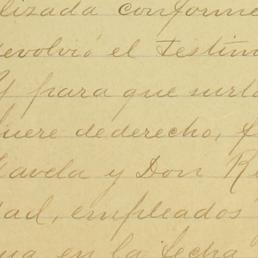 lizada conforme
devolvió el Testim
Y para que surta
uere dederecho, f
lavela y Don R
dad, empleados
ua en la fecha